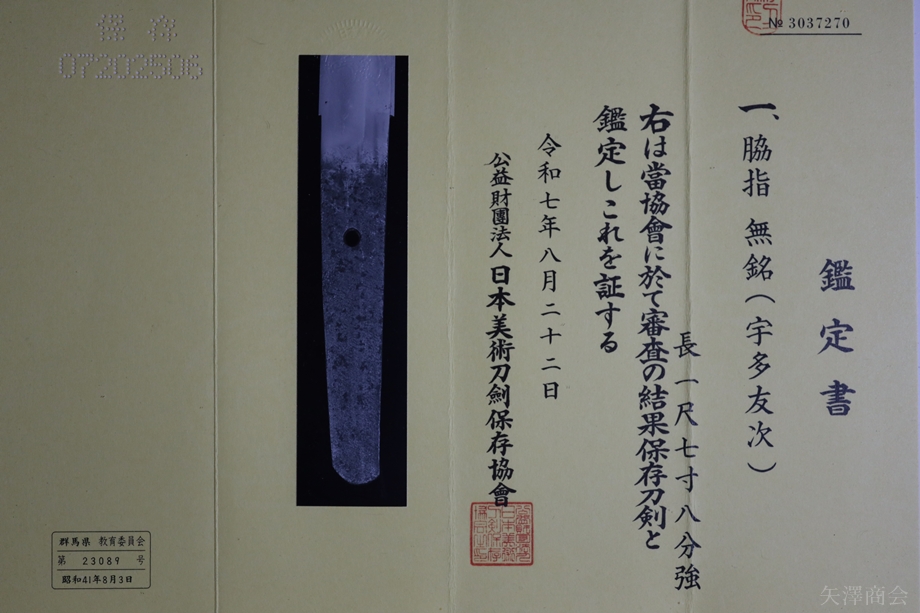 № 3037270
鑑定書
一、脇指 無銘(宇多友次)
長一尺七寸八分強
右は當協會に於て審査の結果保存刀剣と
鑑定しこれを証する
令和七年八月二十二日
公益財團法人 日本美術刀劍保存協會
保存
07202506
群馬県 教育委員会
第 23089 号
昭和41年8月3日
矢澤商会